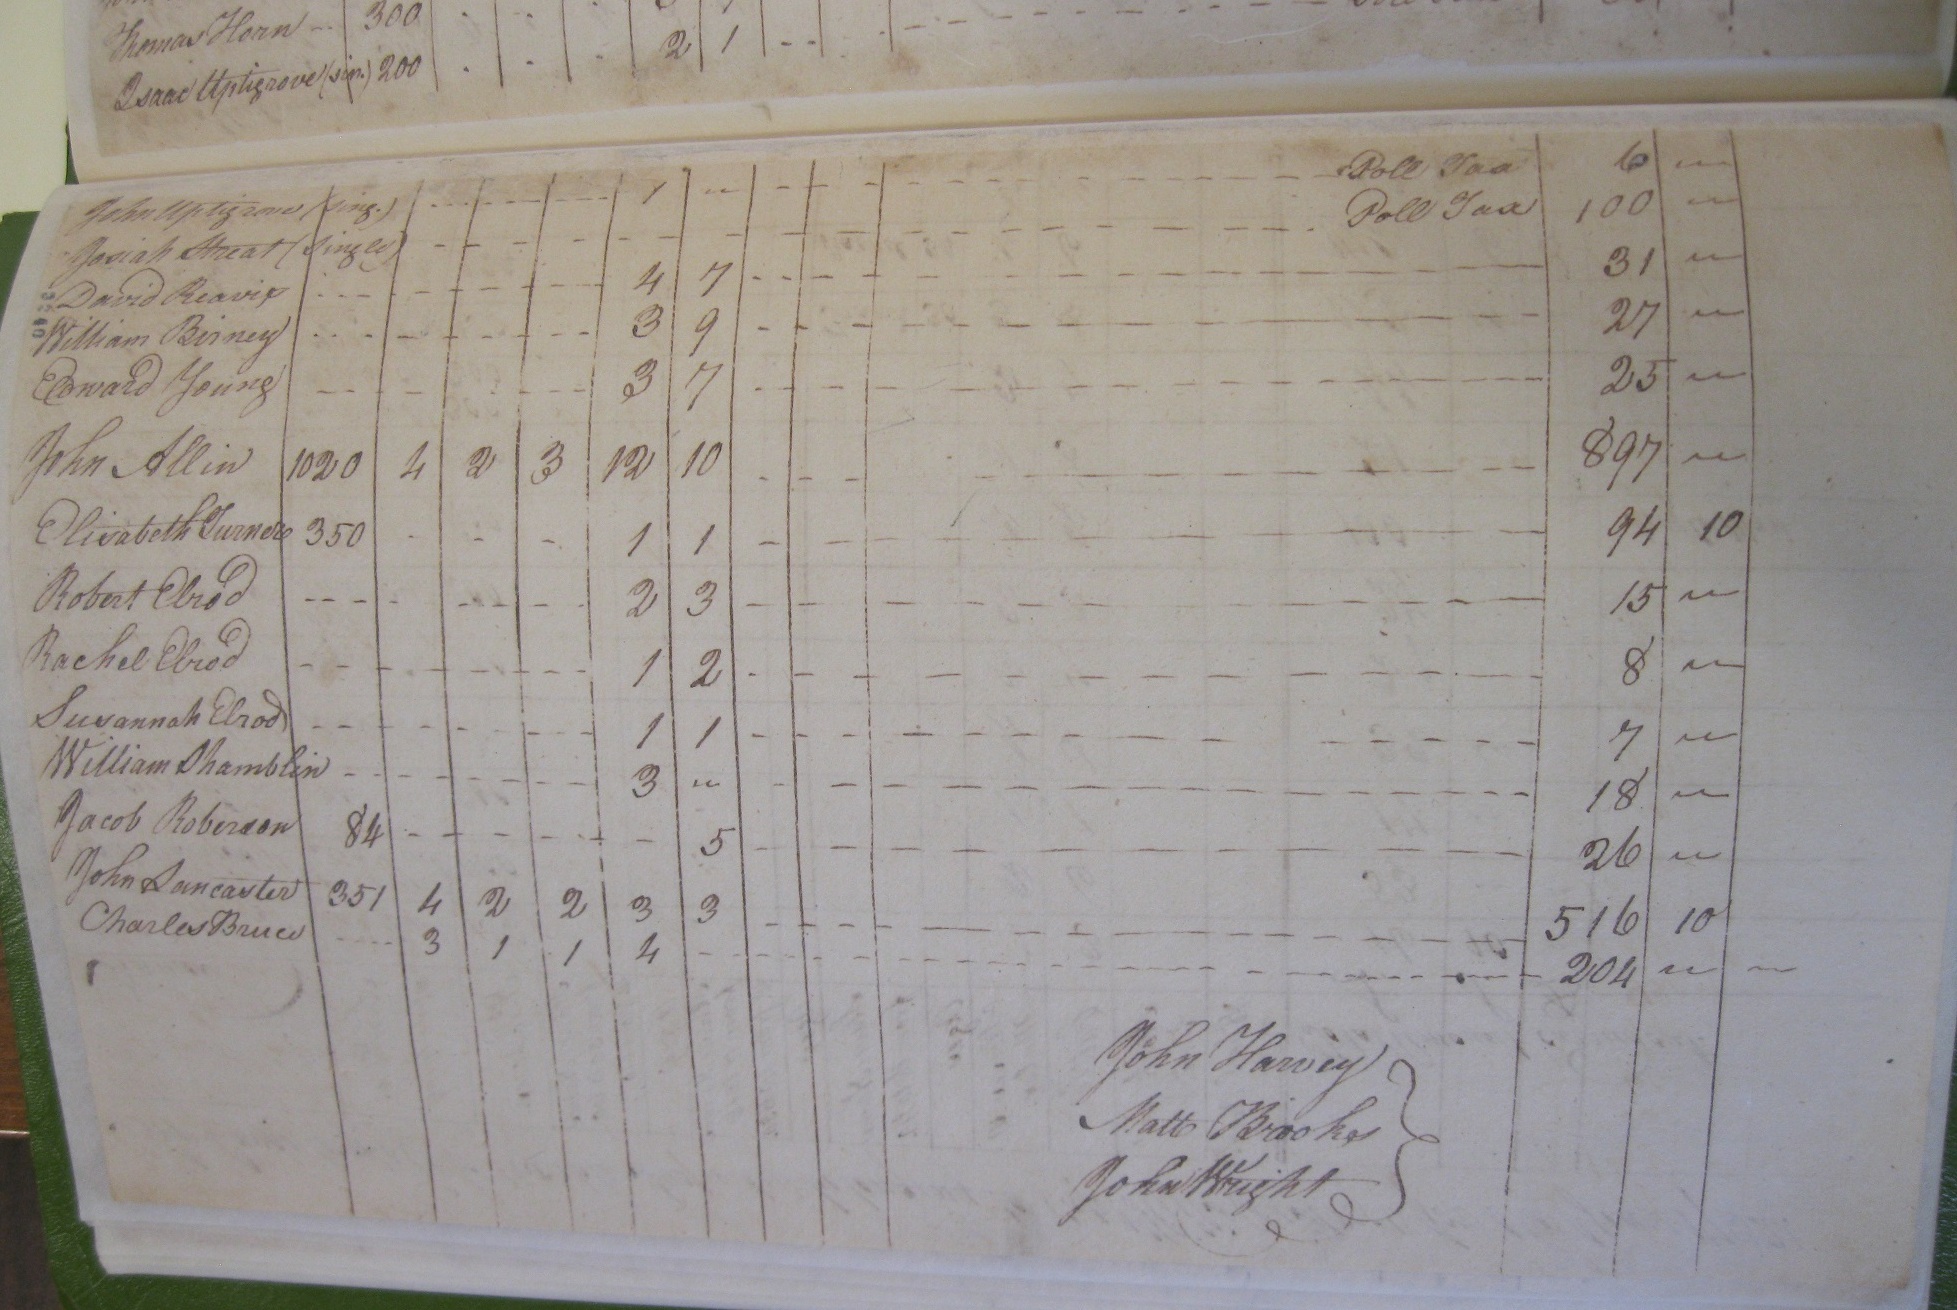 Thomas Horn -- 300 . . . 2 1
Isaac Uptigrove (sin.) 200 . . . 2 1 --
John Uptigrove (sing.) 1 " Poll Tax 6 "
Josiah Streat (single) Poll Tax 100 "
David Reavis 4 7 31 "
William Birney 3 9 27 "
Edward Young 3 7 25 "
John Allin 1020 4 2 3 12 10 897 "
Elisabeth Turner 350 - - - 1 1 94 10
Robert Elrod 2 3 15 "
Rachel Elrod 1 2 8 "
Susannah Elrod 1 1 7 "
William Shamblin 3 " 18 "
Jacob Roberson 84 5 26 "
John Lancaster 351 4 2 2 3 3 516 10
Charles Bruce 3 1 1 4 204 " "
John Harvey
Matt Brookes
John Wright